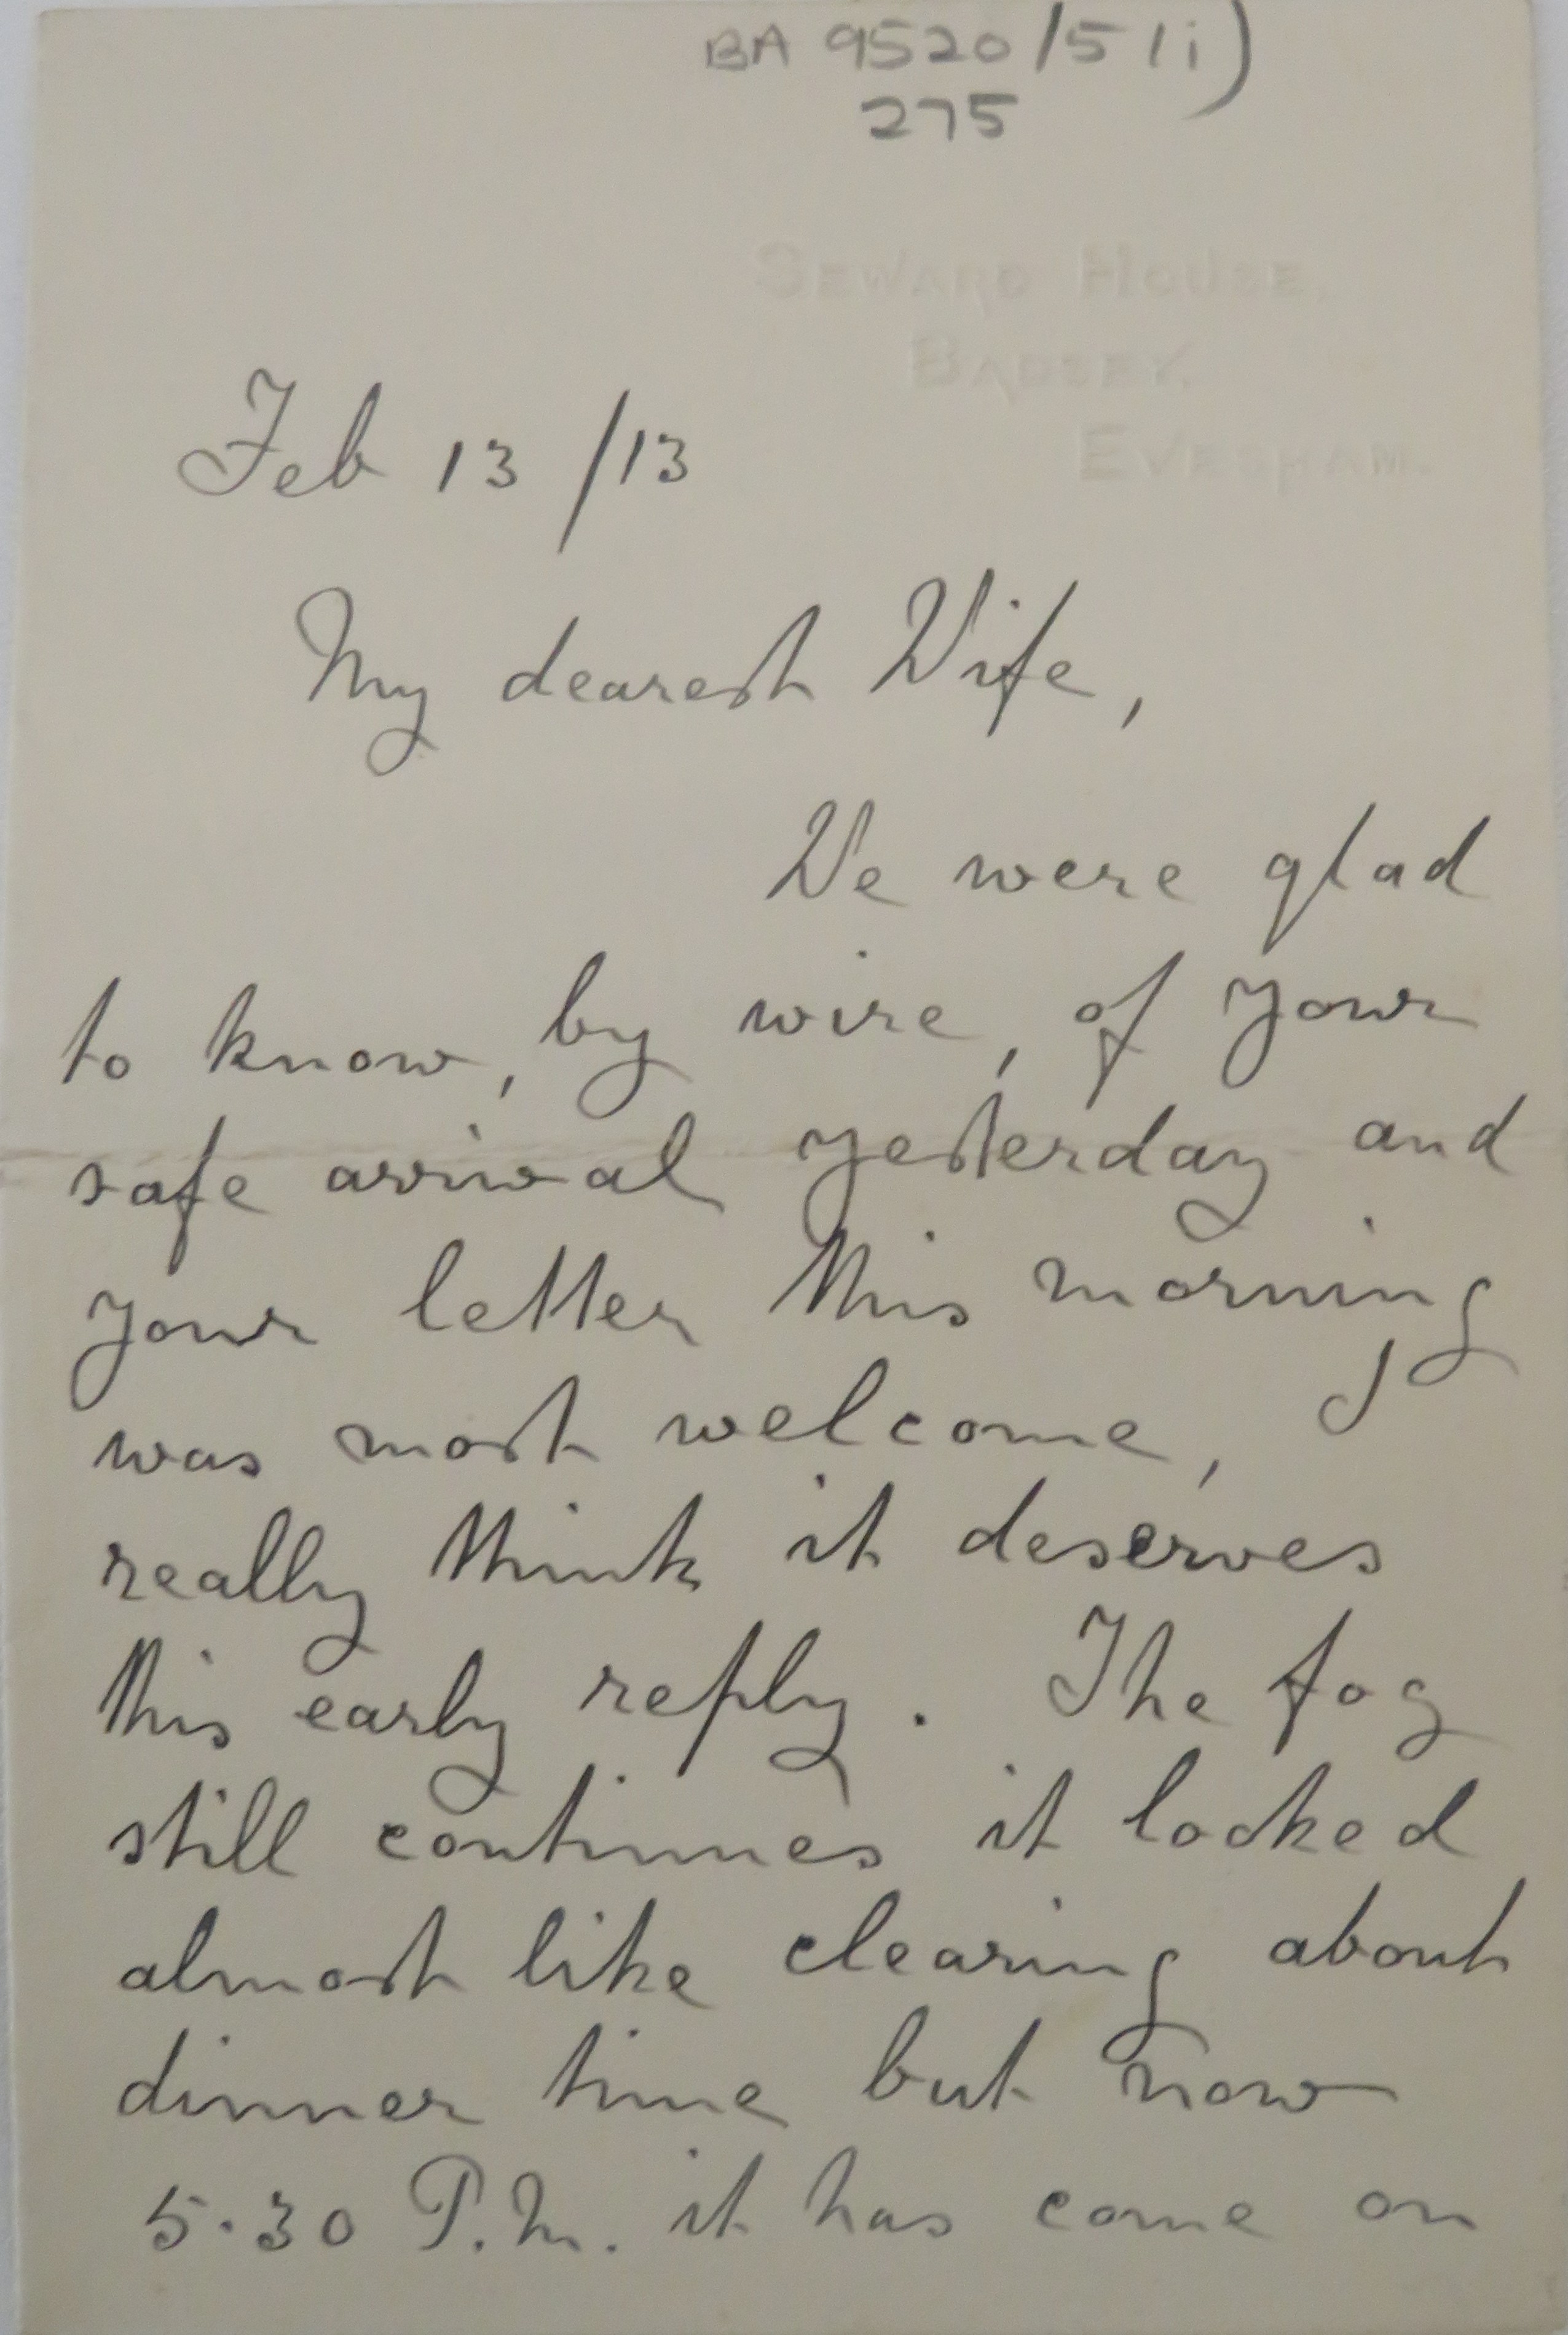 BA 9520/5(i)
275
SEWARD HOUSE,
BADSEY,
EVESHAM.
Feb 13/13
My dearest Wife,
We were glad
to know, by wire, of your
safe arrival yesterday and
your letter this morning
was most welcome, I
really think it deserves
this early reply. The fog
still continues it looked
almost like clearing about
dinner time but now
5.30 P.M. it has come on